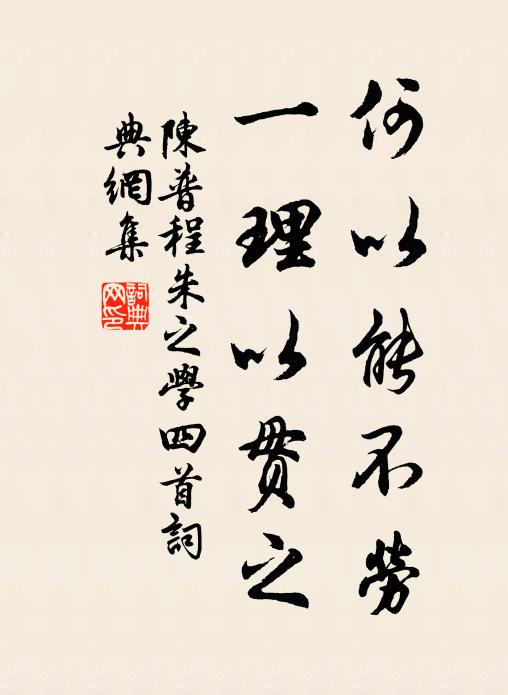 何以能不勞
一理以貫之
陳普程朱之學四首詞
典網集
詞典
网印